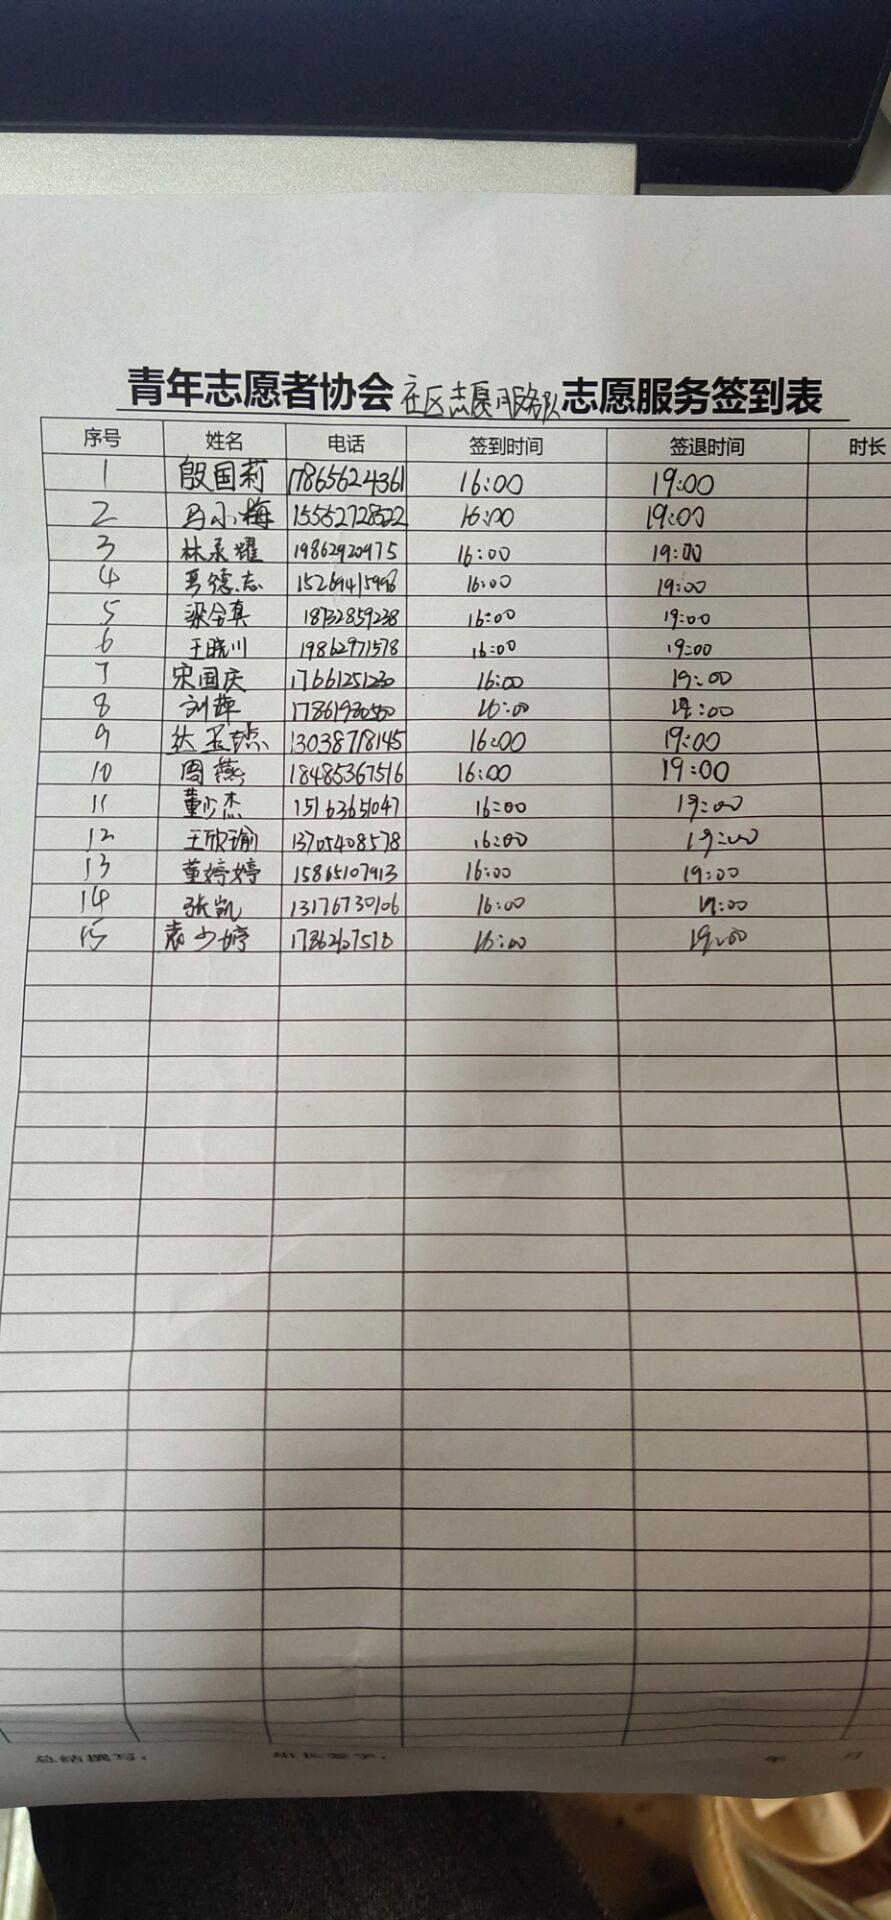 青年志愿者协会 社区志愿服务队 志愿服务签到表
序号 姓名 电话 签到时间 签退时间 时长
1 殷国莉 17865624361 16:00 19:00
2 马小梅 15562728522 16:00 19:00
3 林承耀 19862920975 16:00 19:00
4 马德志 15269415998 16:00 19:00
5 梁全真 18732859238 16:00 19:00
6 王晓川 19862971578 16:00 19:00
7 宋国庆 17661251230 16:00 19:00
8 刘 17861930550 16:00 19:00
9 13038718145 16:00 19:00
10 周燕 18485367516 16:00 19:00
11 董少杰 15163651047 16:00 19:00
12 王欣瑜 13705408578 16:00 19:00
13 董婷婷 15865107913 16:00 19:00
14 张凯 13176730106 16:00 19:00
15 袁少婷 16:00 19:00
总结撰写: 组长签字: 年 月